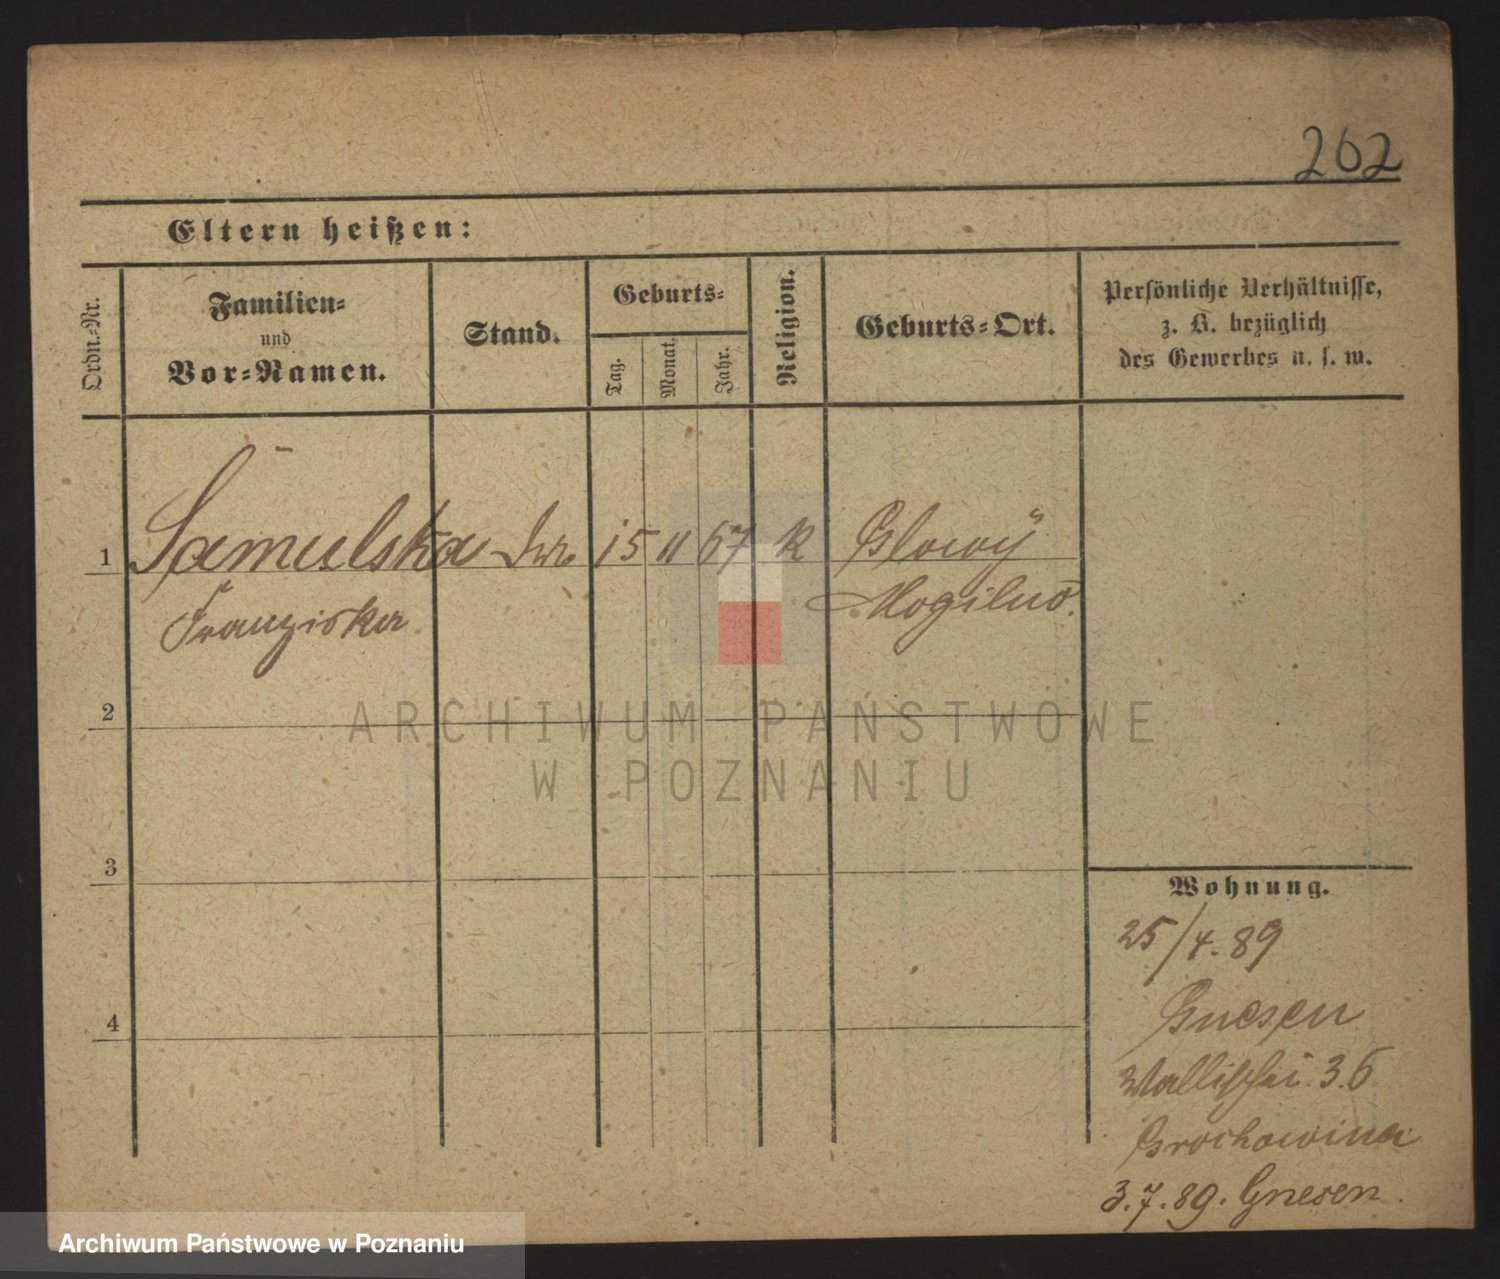 262
Eltern heißen:
Ordn.-Nr.
Familien-
und
Vor-Namen.
Stand.
Geburts-
Tag.
Monat.
Jahr.
Religion.
Geburts-Ort.
Persönliche Verhältnisse,
z. B. bezüglich
des Gewerbes u. s. w.
1 Samulska 15 11 67 K Glowÿ
Franziska Mogilno.
2
ARCHIWUM PAŃSTWOWE
W POZNANIU
3
4
Wohnung.
25/4. 89
Gnesen
Wallischei 36
Grochowina
3.7.89. Gnesen.
Archiwum Państwowe w Poznaniu